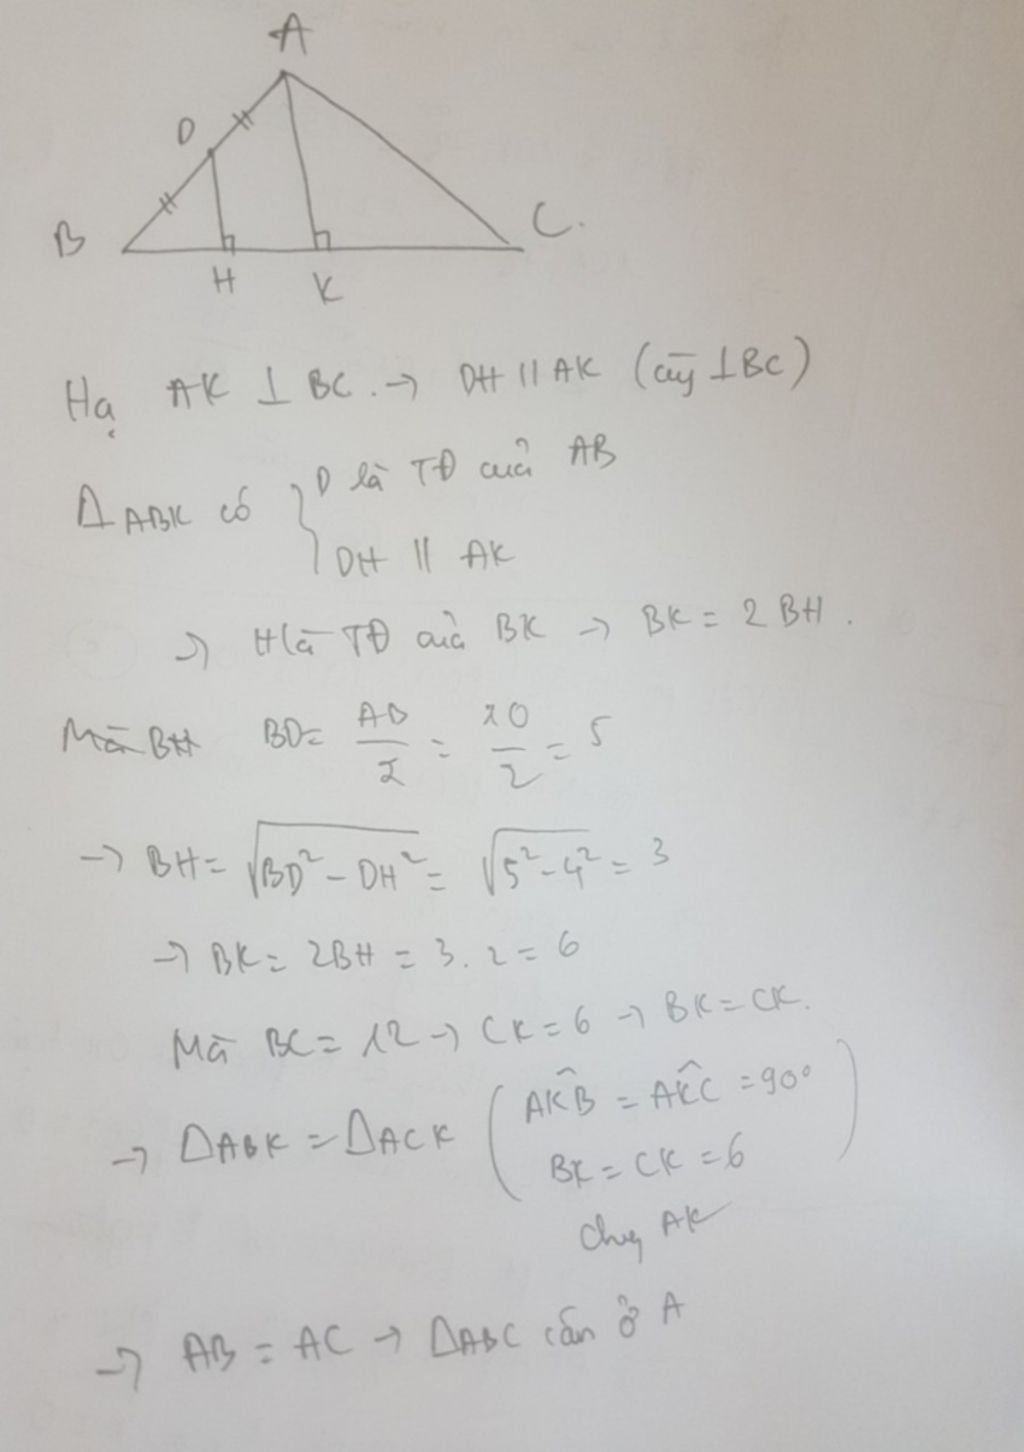 A
D
B
C.
H
K
Hạ AK ⊥ BC. → DH // AK (cùg ⊥BC)
ΔABK có { D là TĐ của AB
DH // AK
→ H là TĐ của BK → BK = 2BH.
Mà BH BD = AB/2 = 10/2 = 5
→ BH = √(BD² - DH²) = √(5² - 4²) = 3
→ BK = 2BH = 3.2 = 6
Mà BC = 12 → CK = 6 → BK = CK.
→ ΔABK = ΔACK ( AK̂B = AK̂C = 90°
BK = CK = 6
chug AK )
→ AB = AC → ΔABC cân ở A